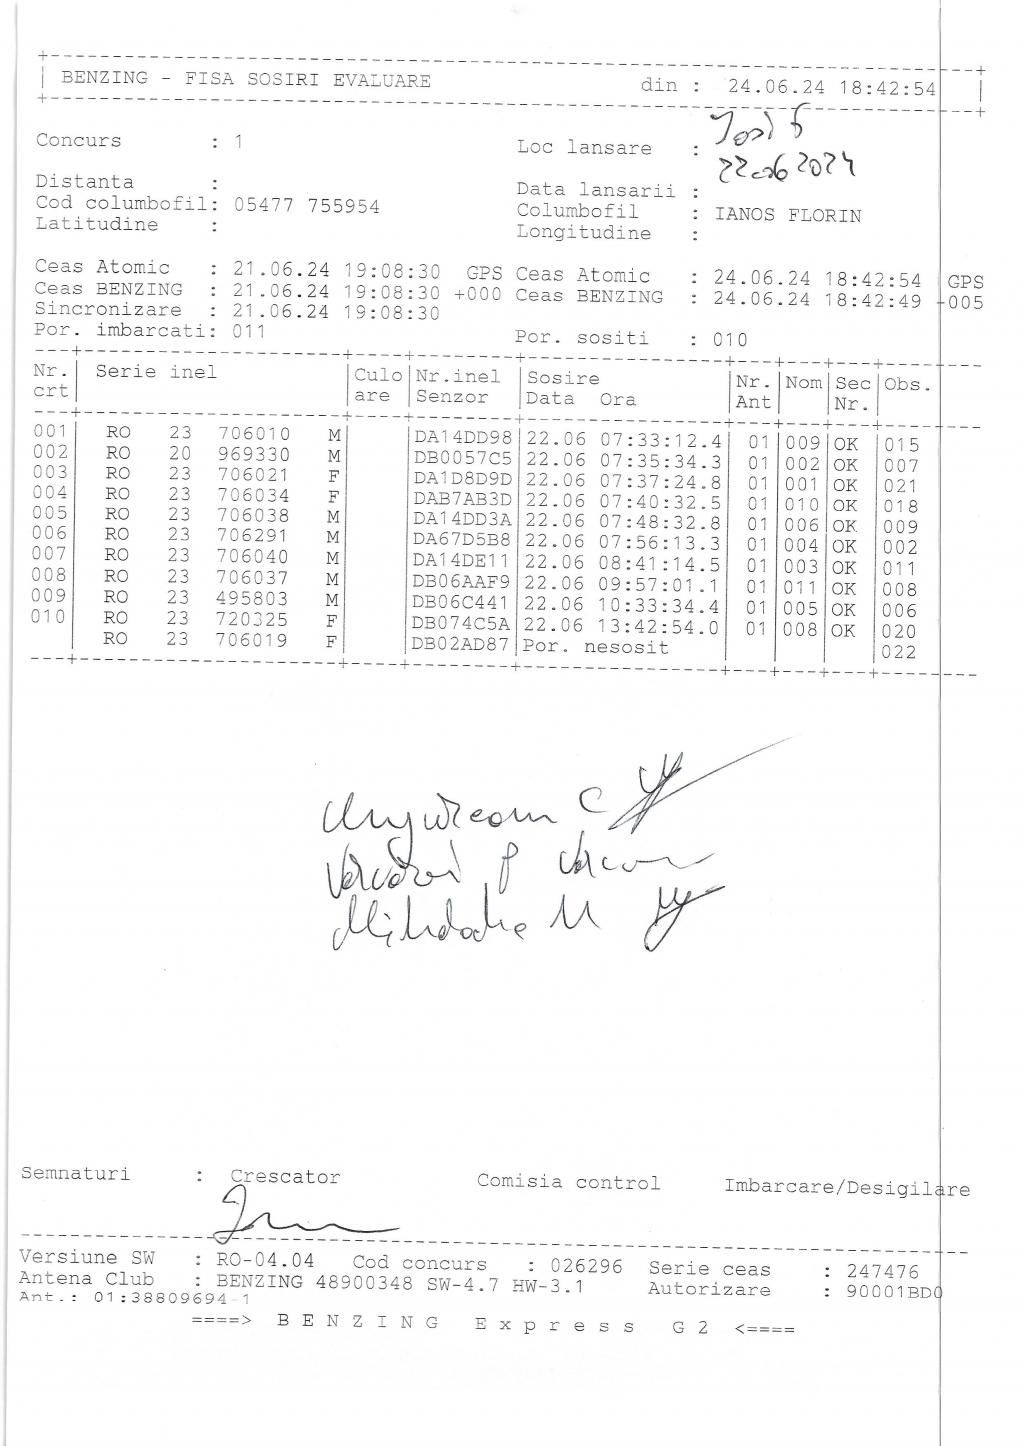 BENZING - FISA SOSIRI EVALUARE din : 24.06.24 18:42:54
Concurs : 1 Loc lansare : Iosif
22.06 2024
Distanta : Data lansarii :
Cod columbofil: 05477 755954 Columbofil : IANOS FLORIN
Latitudine : Longitudine :
Ceas Atomic : 21.06.24 19:08:30 GPS Ceas Atomic : 24.06.24 18:42:54 GPS
Ceas BENZING : 21.06.24 19:08:30 +000 Ceas BENZING : 24.06.24 18:42:49 +005
Sincronizare : 21.06.24 19:08:30
Por. imbarcati: 011 Por. sositi : 010
Nr. Serie inel Culo Nr.inel Sosire Nr. Nom Sec Obs.
crt are Senzor Data Ora Ant Nr.
001 RO 23 706010 M DA14DD98 22.06 07:33:12.4 01 009 OK 015
002 RO 20 969330 M DB0057C5 22.06 07:35:34.3 01 002 OK 007
003 RO 23 706021 F DA1D8D9D 22.06 07:37:24.8 01 001 OK 021
004 RO 23 706034 F DAB7AB3D 22.06 07:40:32.5 01 010 OK 018
005 RO 23 706038 M DA14DD3A 22.06 07:48:32.8 01 006 OK 009
006 RO 23 706291 M DA67D5B8 22.06 07:56:13.3 01 004 OK 002
007 RO 23 706040 M DA14DE11 22.06 08:41:14.5 01 003 OK 011
008 RO 23 706037 M DB06AAF9 22.06 09:57:01.1 01 011 OK 008
009 RO 23 495803 M DB06C441 22.06 10:33:34.4 01 005 OK 006
010 RO 23 720325 F DB074C5A 22.06 13:42:54.0 01 008 OK 020
RO 23 706019 F DB02AD87 Por. nesosit 022
Semnaturi : Crescator Comisia control Imbarcare/Desigilare
Versiune SW : RO-04.04 Cod concurs : 026296 Serie ceas : 247476
Antena Club : BENZING 48900348 SW-4.7 HW-3.1 Autorizare : 90001BD0
Ant.: 01:38809694-1
====> B E N Z I N G E x p r e s s G 2 <====